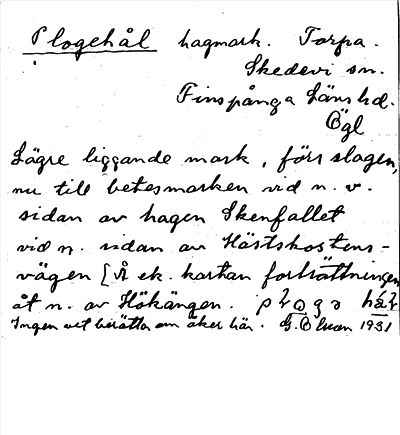 Plogehål hagmark. Torpa.
Skedevi sn.
Finspånga Läns hd.
Ögl
Lägre liggande mark, förr slagen,
nu till betesmarken vid n. v.
sidan av hagen Skenfallet
vid n. sidan av Hästskostens-
vägen [Å ek. kartan fortsättningen
åt n. av Hökängen.
Ingen vet berätta om åker här. 1931